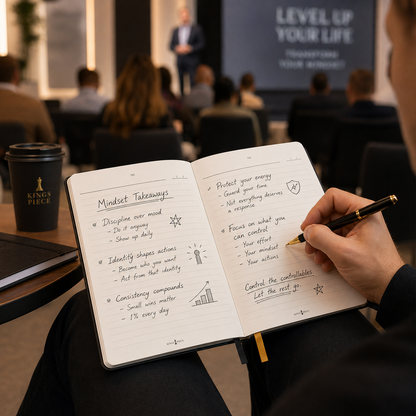 LEVEL UP
YOUR LIFE
TRANSFORM
YOUR MINDSET
KINGS
PIECE
Mindset Takeaways
Discipline over mood
- Do it anyway
- Show up daily
Identity shapes actions
- Become who you want
- Act from that identity
Consistency compounds
- Small wins matter
- 1% every day
Protect your energy
- Guard your time
- Not everything deserves
a response
Focus on what you
can control
- Your effort
- Your mindset
- Your actions
Control the controllables
Let the rest go.